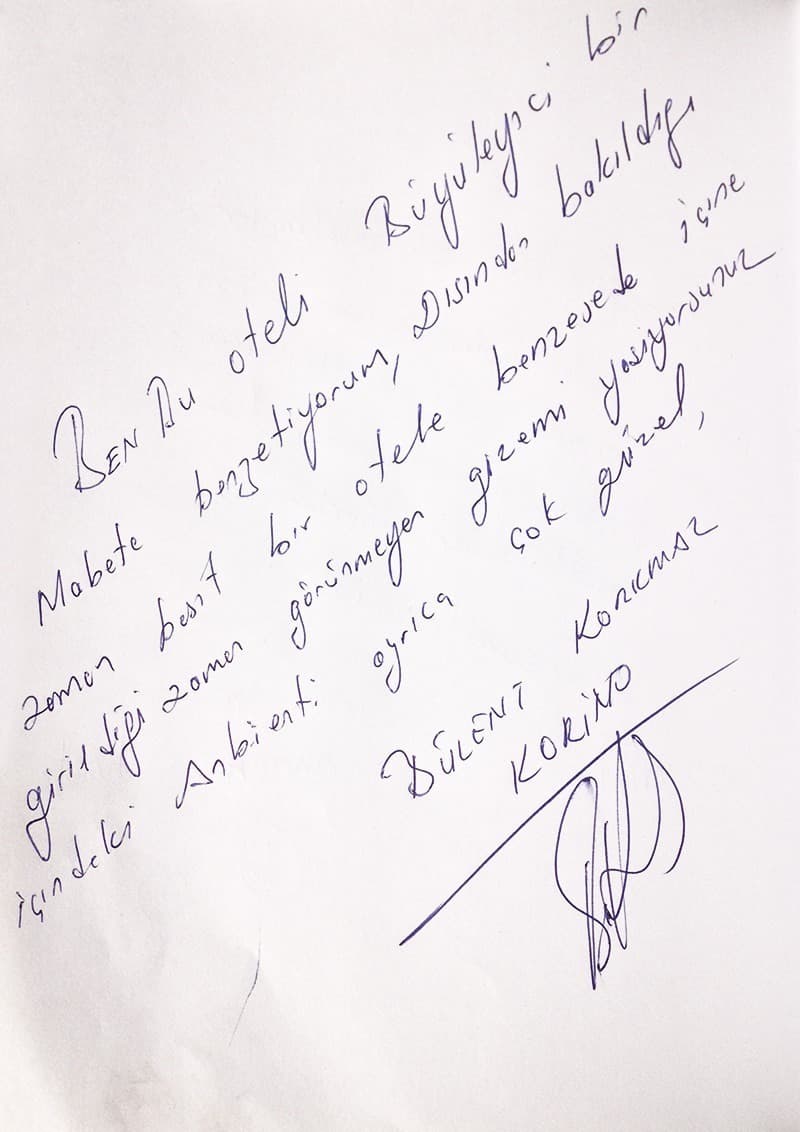 BEN Bu oteli Büyüleyici bir
Mabete benzetiyorum, Dışından bakıldığı
zaman basit bir otele benzesede içine
girildiği zaman görünmeyen gizemi yaşıyorsunuz
içindeki Anbienti ayrıca çok güzel,
BÜLENT KORKMAZ
KORİNO